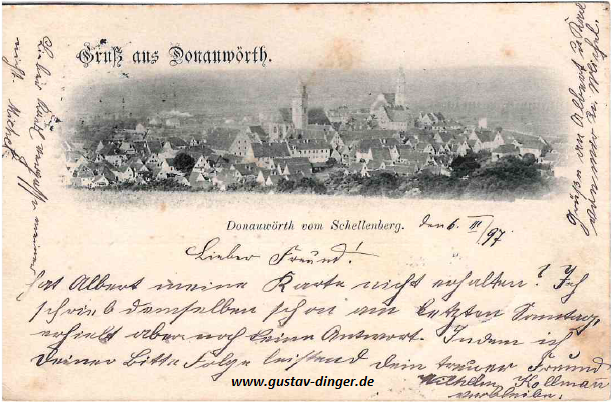 Gruß aus Donauwörth.
Donauwörth vom Schellenberg.
den 6. III/97
Lieber Freund!
hat Albert meine Karte nicht erhalten? Ich
schrieb demselben schon am letzten Sonntag,
erhielt aber noch keine Antwort. Indem ich
Deiner Bitte Folge leistend Dein treuer Freund
Wilhelm Kollmann
verbleibe.
www.gustav-dinger.de
Grüße an Albert